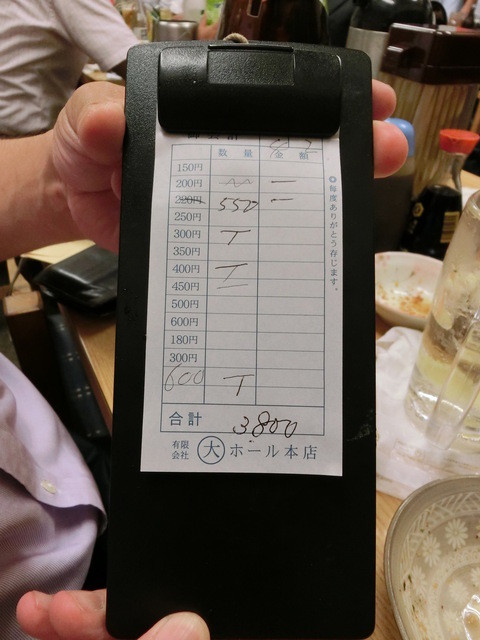 数量 金額
150円
200円 —
220円 550 —
250円
300円 T
350円
400円 T
450円
500円
600円
180円
300円
600 T
合計 3.800
有限会社 大 ホール本店
◎毎度ありがとう存じます。